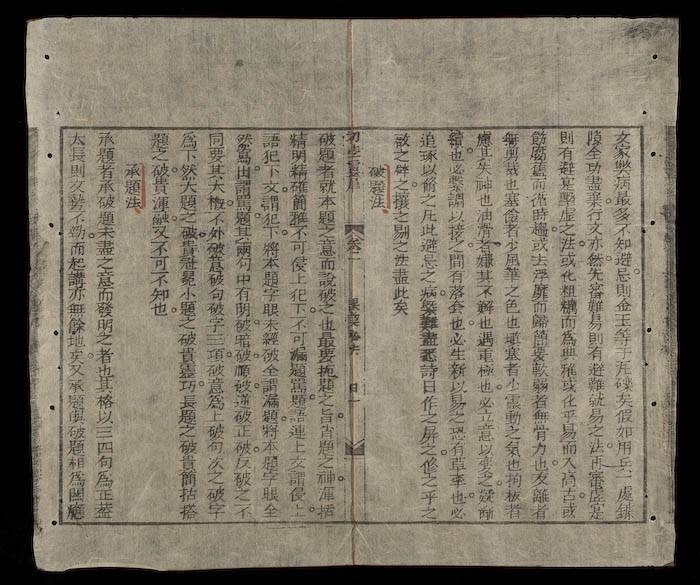 文家獎病最多不知避忌則金玉等于瓦礫矣假如用兵一處鍊
除全功盡棄行文亦然先審難易則有避難就易之法再審虛寔
則有避寔擊虛之法或化粗糲而為典雅或化平易而入高古或
飭腐舊而作時趨或去浮靡而歸簡要軟弱者無骨力也支離者
無剪裁也寒儉者少風華之色也填塞者少靈動之氣也拘板者
慮其失神也油滑者嫌其不解也遇重極也必立意以
也必擊謂以接之間有落套也必生新以易之恐有草率也必
追琢以飾之凡此避忌之病 詩曰作之屏之修之平之
啟之辟之攘之剔之法盡此矣
破題法
初學 卷二
破題者就本題之意而說破之也最要扼題之旨肖題之神渾括
精明精確簡雅不可侵上犯下不可漏題罵題語連上文謂侵上
語犯下文謂犯下將本題字眼未經破全謂漏題將本題字眼全
然寫出謂罵題其兩句中有明破暗破順破逆破正破反破之不
同要其大概不外破意破句破字三項破意為上破句次之破字
為下然大題之破貴冠冕小題之破貴靈巧長題之破貴簡括搭
題之破貴渾融又不可不知也
承題法
承題者承破題未盡之意而發明之者也其格以三四句為正蓋
太長則文勢不勁而起講亦無餘地矣又承題與破題相為因應